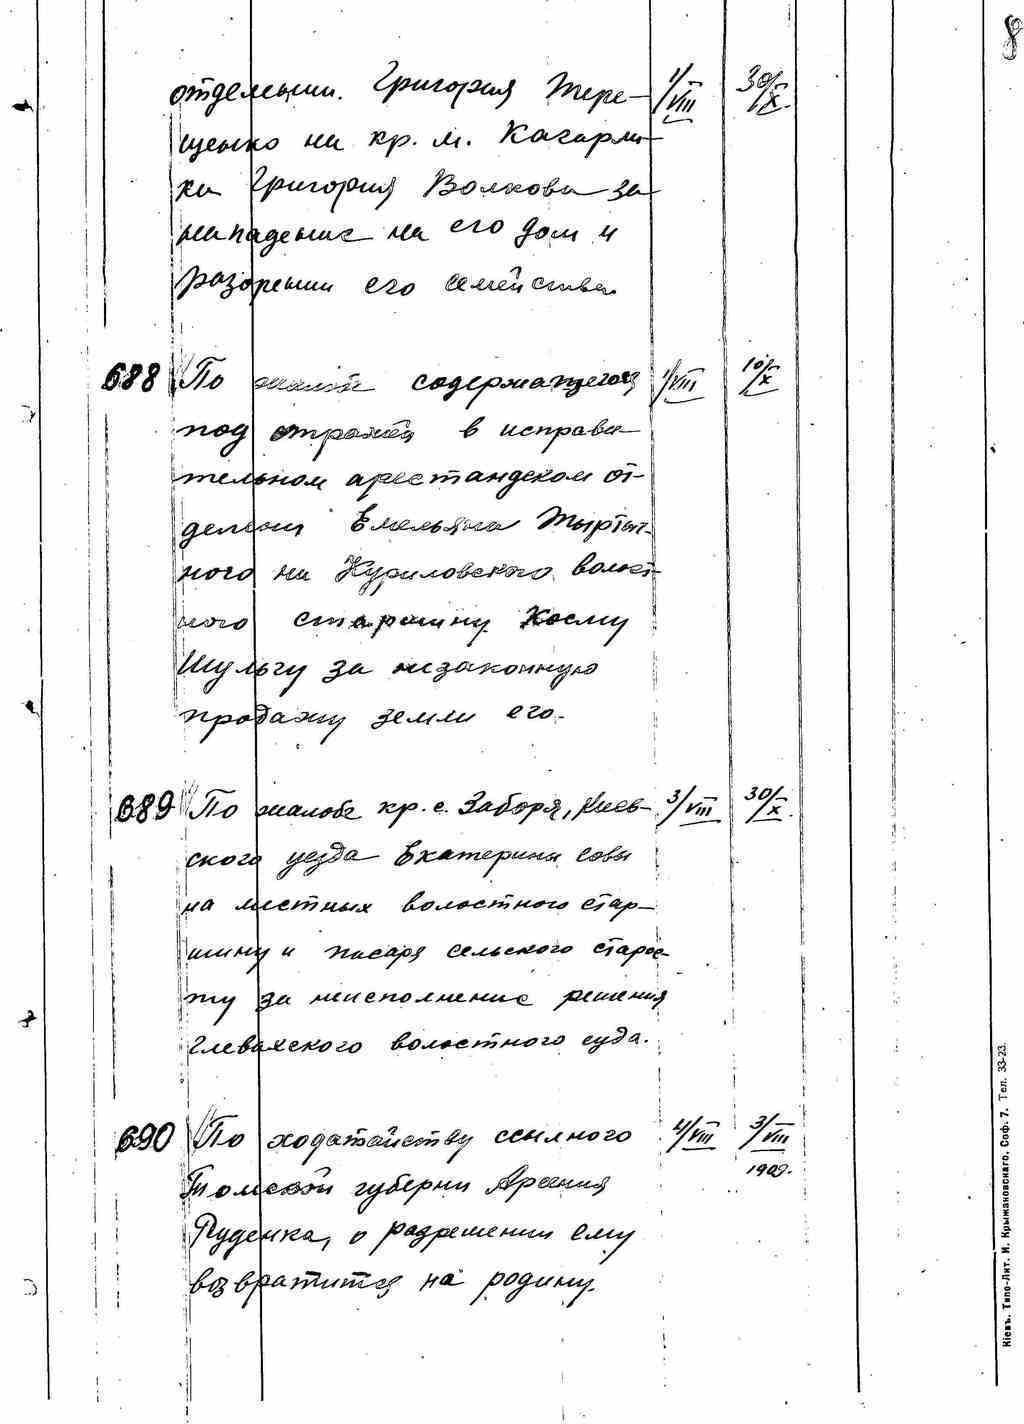 8
отделении. Григория Тере- 1/VIII 30/X.
щенко на кр. м. Кагарлы-
ка Григория Волкова за
нападение на его дом и
разорении его семейства.
688 По жалобе содержащегося 1/VIII 10/X
под стражей в исправи-
тельном арестандском от-
делении Емельяна
ного на Куриловского волост-
ного старшину Косму
Шульгу за незаконную
продажу земли его.
689 По жалобе кр. с. Заборя, Киев- 3/VIII 30/X.
ского уезда Екатерины Совы
на местных волостного стар-
шину и писаря сельского старос-
ту за неисполнение решения
Глевахского волостного суда.
690 По ходатайству ссылного 4/VIII 3/VIII
Томской губерни Арсения 1909.
Руденка, о разрешении ему
возвратится на родину.
Кіевъ. Типо-Лит. И. Крыжановскаго. Соф. 7. Тел. 33-23.